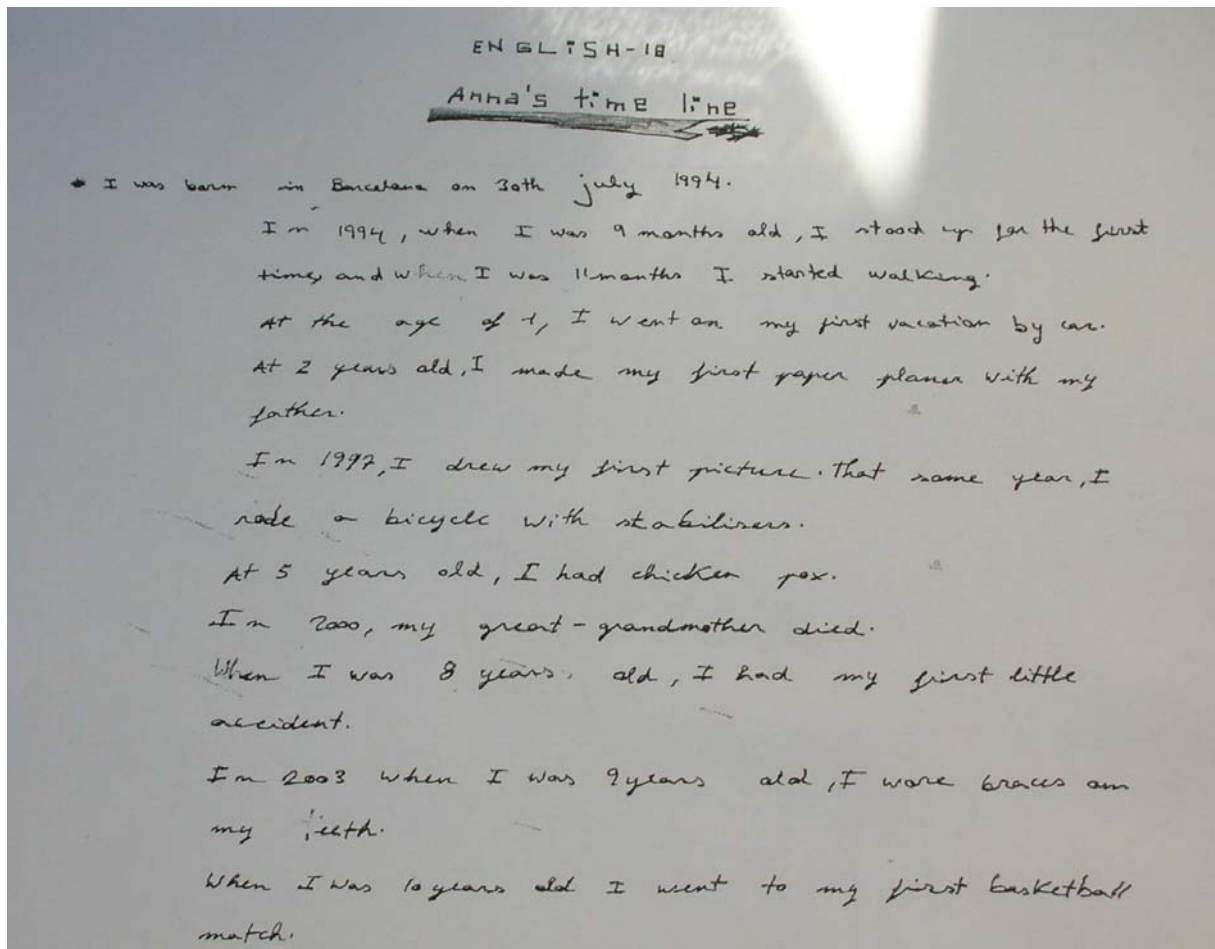 ENGLISH-18
Anna's time line
* I was born in Barcelona on 30th july 1994.
In 1994, when I was 9 months old, I stood up for the first
time, and when I was 11 months I started walking.
At the age of 1, I went on my first vacation by car.
At 2 years old, I made my first paper planer with my
father.
In 1997, I drew my first picture. That same year, I
rode a bicycle with stabilisers.
At 5 years old, I had chicken pox.
In 2000, my great-grandmother died.
When I was 8 years. old, I had my first little
accident.
In 2003 when I was 9 years old, I wore braces on
my teeth.
When I was 10 years old I went to my first basketball
match.